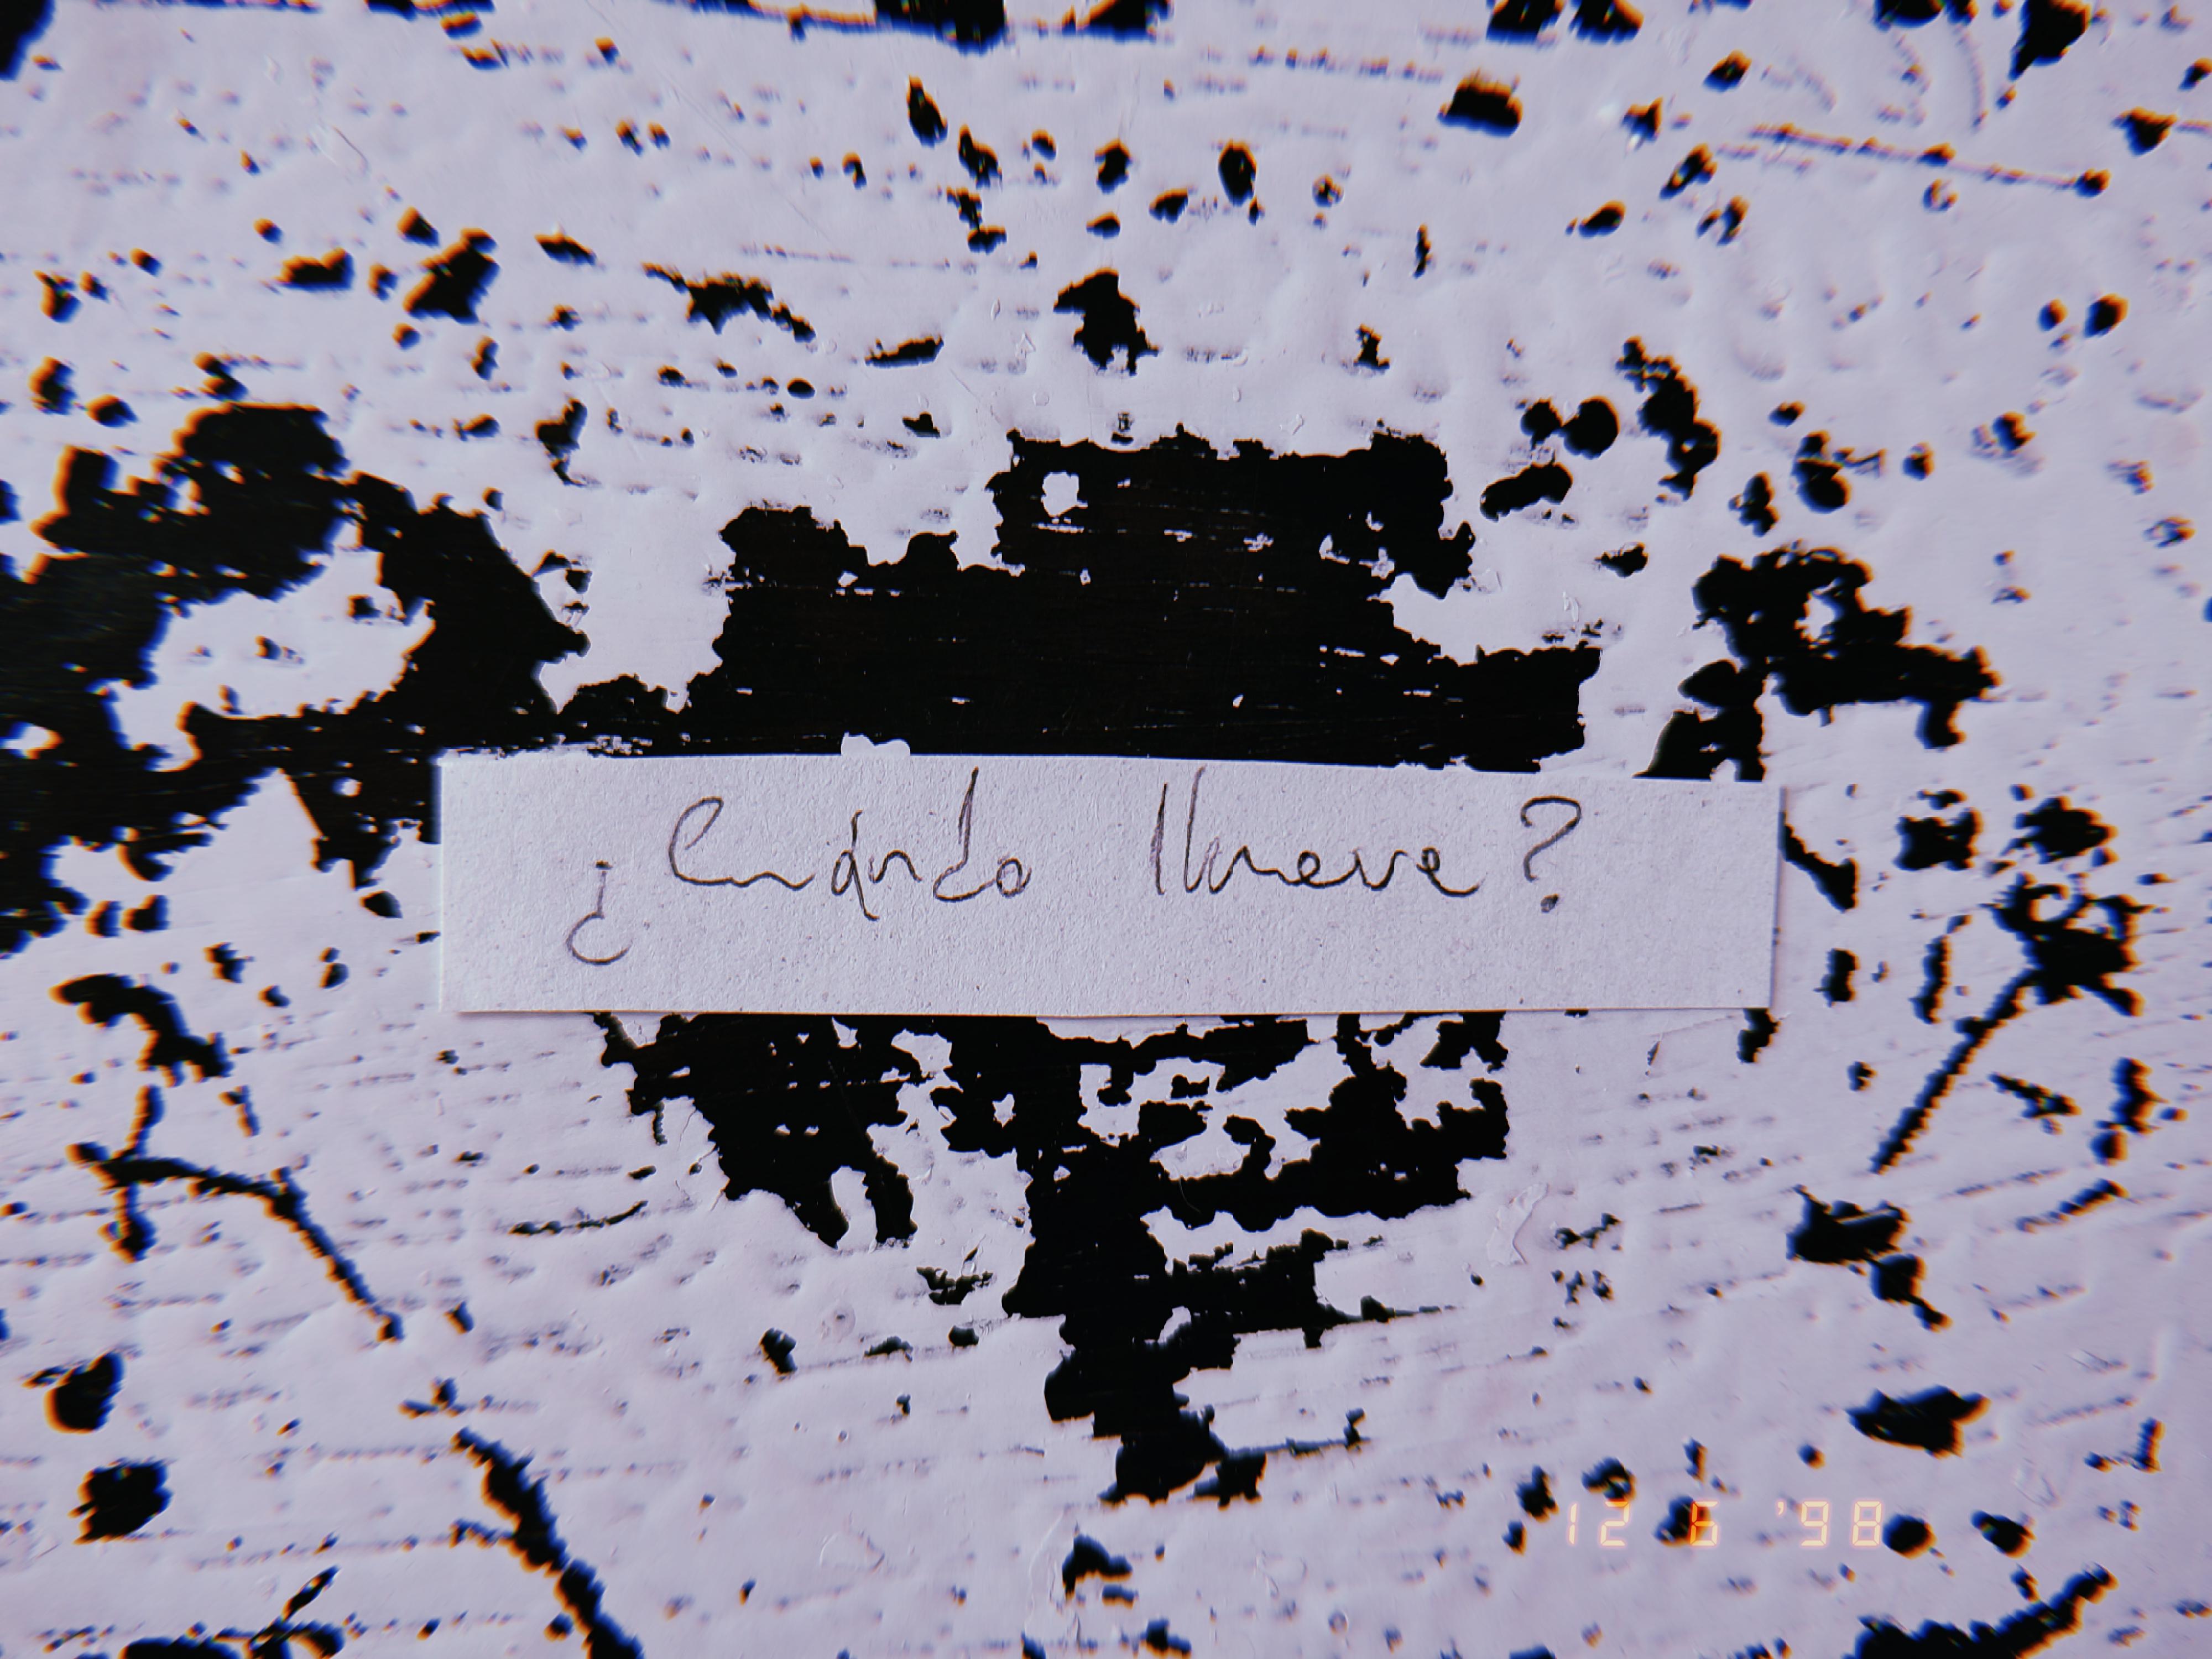 ¿Cuándo llueve?
12 6 '98